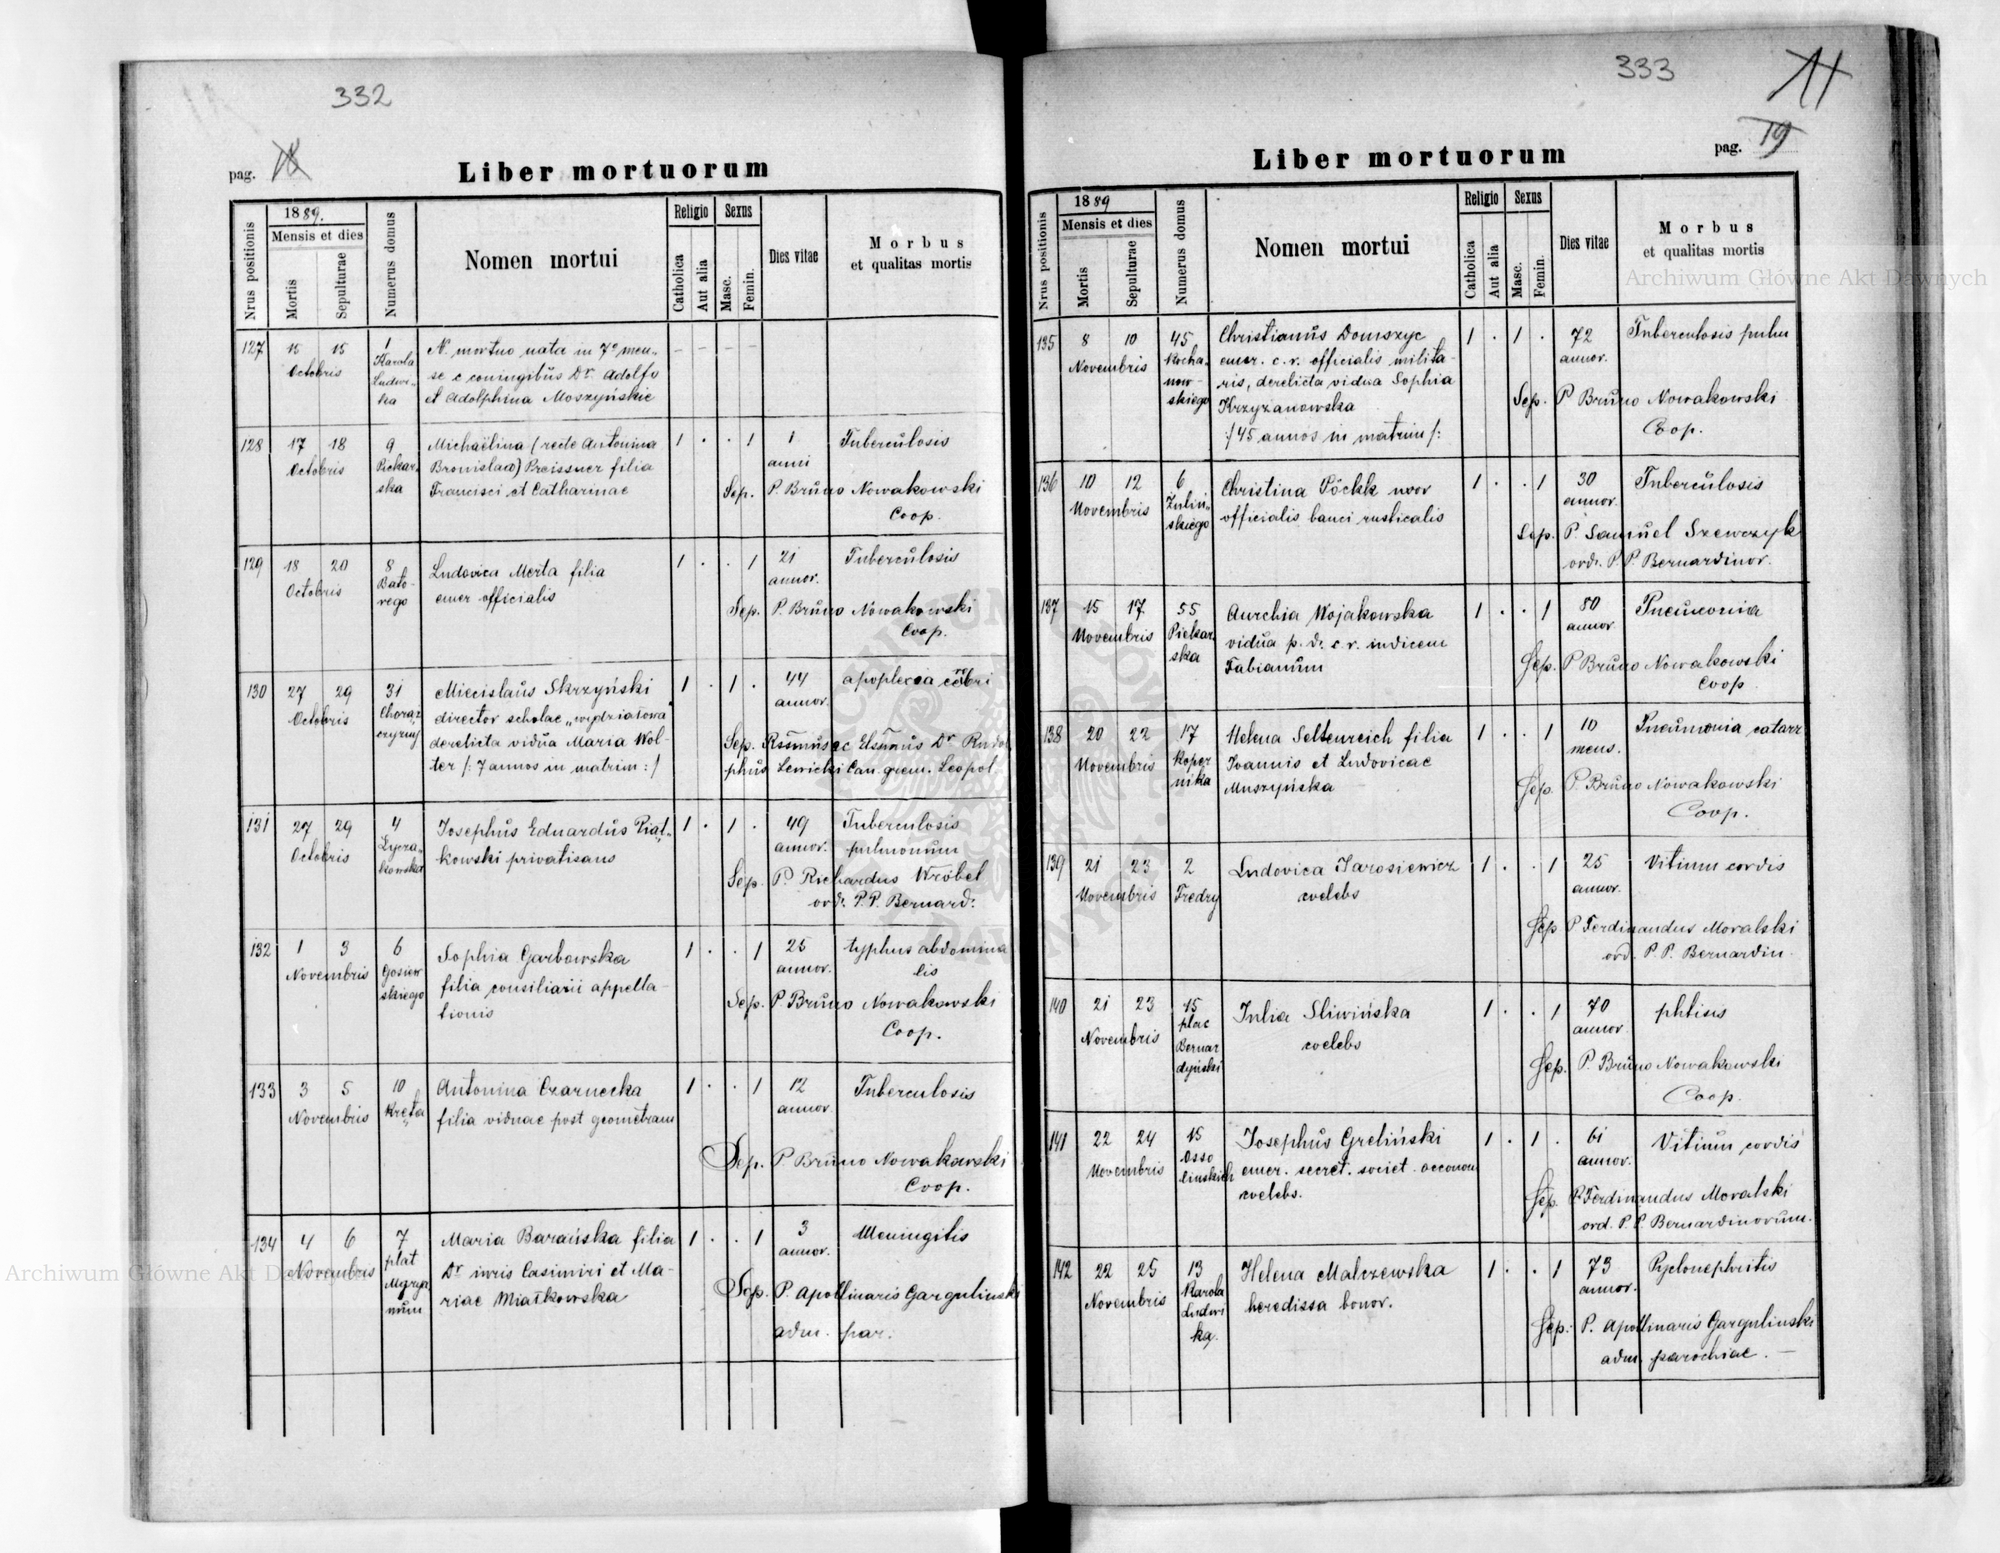 332
pag.
Liber mortuorum
Nrus positionis
1889.
Mensis et dies
Mortis
Sepulturae
Numerus domus
Nomen mortui
Religio
Catholica
Aut alia
Sexus
Masc.
Femin.
Dies vitae
Morbus
et qualitas mortis
127 15 15 1
Octobris Karola
Ludwi-
ka
N. mortuo nata in 7o men-
se c coniugibus Dr. Adolfo
et Adolphina Moszyńskie
128 17 18 9 Michaëlina (recte Antonina 1 . . 1 1 Tuberculosis
Octobris Piekar- Bronislaa) Preissner filia anni
ska Francisci et Catharinae Sep. P. Bruno Nowakowski
Coop.
129 18 20 8 Ludovica Merta filia 1 . . 1 21 Tuberculosis
Octobris Bato- emer officialis annor.
rego Sep. P. Bruno Nowakowski
Coop.
130 27 29 31 Miecislaus Skrzyński 1 . 1 . 44 apoplexia cerebri
Octobris Chorąż director scholae „wydziałowa" annor.
czyzny derelicta vidua Maria Wol- Sep. Rssmus ac Elsmus Dr Rudol
ter /: 7 annos in matrim :/ phus Lewicki Can. grem. Leopol.
131 27 29 4 Josephus Eduardus Piąt- 1 . 1 . 49 Tuberculosis
Octobris Łycza- kowski privatisans annor. pulmonum
kowska Sep. P. Richardus Wróbel
ord. P.P. Bernard.
132 1 3 6 Sophia Garbowska 1 . . 1 25 typhus abdomina
Novembris Gosiew filia consiliarii appella- annor. lis
skiego tionis Sep. P Bruno Nowakowski
Coop.
133 3 5 10 Antonina Czarnecka 1 . . 1 12 Tuberculosis
Novembris Kręta filia viduae post geometram annor.
Sep. P Bruno Nowakowski
Coop.
134 4 6 7 Maria Barańska filia 1 . . 1 3 Meningitis
Novembris plat Dr iuris Casimiri et Ma- annor.
riae Miałkowska Sep. P. Apollinaris Gargulinski
adm. par.
333
pag. 19
Liber mortuorum
Nrus positionis
1889
Mensis et dies
Mortis
Sepulturae
Numerus domus
Nomen mortui
Religio
Catholica
Aut alia
Sexus
Masc.
Femin.
Dies vitae
Morbus
et qualitas mortis
135 8 10 45 Christianus Domszyc 1 . 1 . 72 Tuberculosis pulm
Novembris Kocha- emer. c. r. officialis milita- annor.
now- ris, derelicta vidua Sophia Sep. P Bruno Nowakowski
skiego Krzyżanowska Coop.
/45 annos in matrim/:
136 10 12 6 Christina Pöckk uxor 1 . . 1 30 Tuberculosis
Novembris Zuliń- officialis banci rusticalis annor.
skiego Sep. P. Samuel Szewczyk
ord. P.P. Bernardinor.
137 15 17 55 Aurelia Wojakowska 1 . . 1 80 Pneumonia
Novembris Piekar vidua p. d. c. r. iudicem annor
ska Fabianum Sep. P Bruno Nowakowski
Coop
138 20 22 17 Helena Seltenreich filia 1 . . 1 10 Pneumonia catarr
Novembris Koper Ioannis et Ludovicae mens.
nika Muszyńska Sep. P. Bruno Nowakowski
Coop.
139 21 23 2 Ludovica Jarosiewicz 1 . . 1 25 Vitium cordis
Novembris Fredry coelebs annor.
Sep P Ferdinandus Moralski
ord. P.P. Bernardin.
140 21 23 15 Julia Sliwińska 1 . . 1 70 phtisis
Novembris plac coelebs annor
Bernar
dyński Sep. P. Bruno Nowakowski
Coop.
141 22 24 15 Josephus Greliński 1 . 1 . 61 Vitium cordis
Novembris Osso emer. secret. societ. oeconom annor.
linskich coelebs. Sep. P. Ferdinandus Moralski
ord. P.P. Bernardinorum.
142 22 25 13 Helena Malczewska 1 . . 1 73 Pyelonephritis
Novembris Karola heredissa bonor. annor.
Ludwi Sep. P. Apollinaris Gargulinski
ka. adm. parochiae. —
Archiwum Główne Akt Dawnych
Archiwum Główne Akt Dawnych